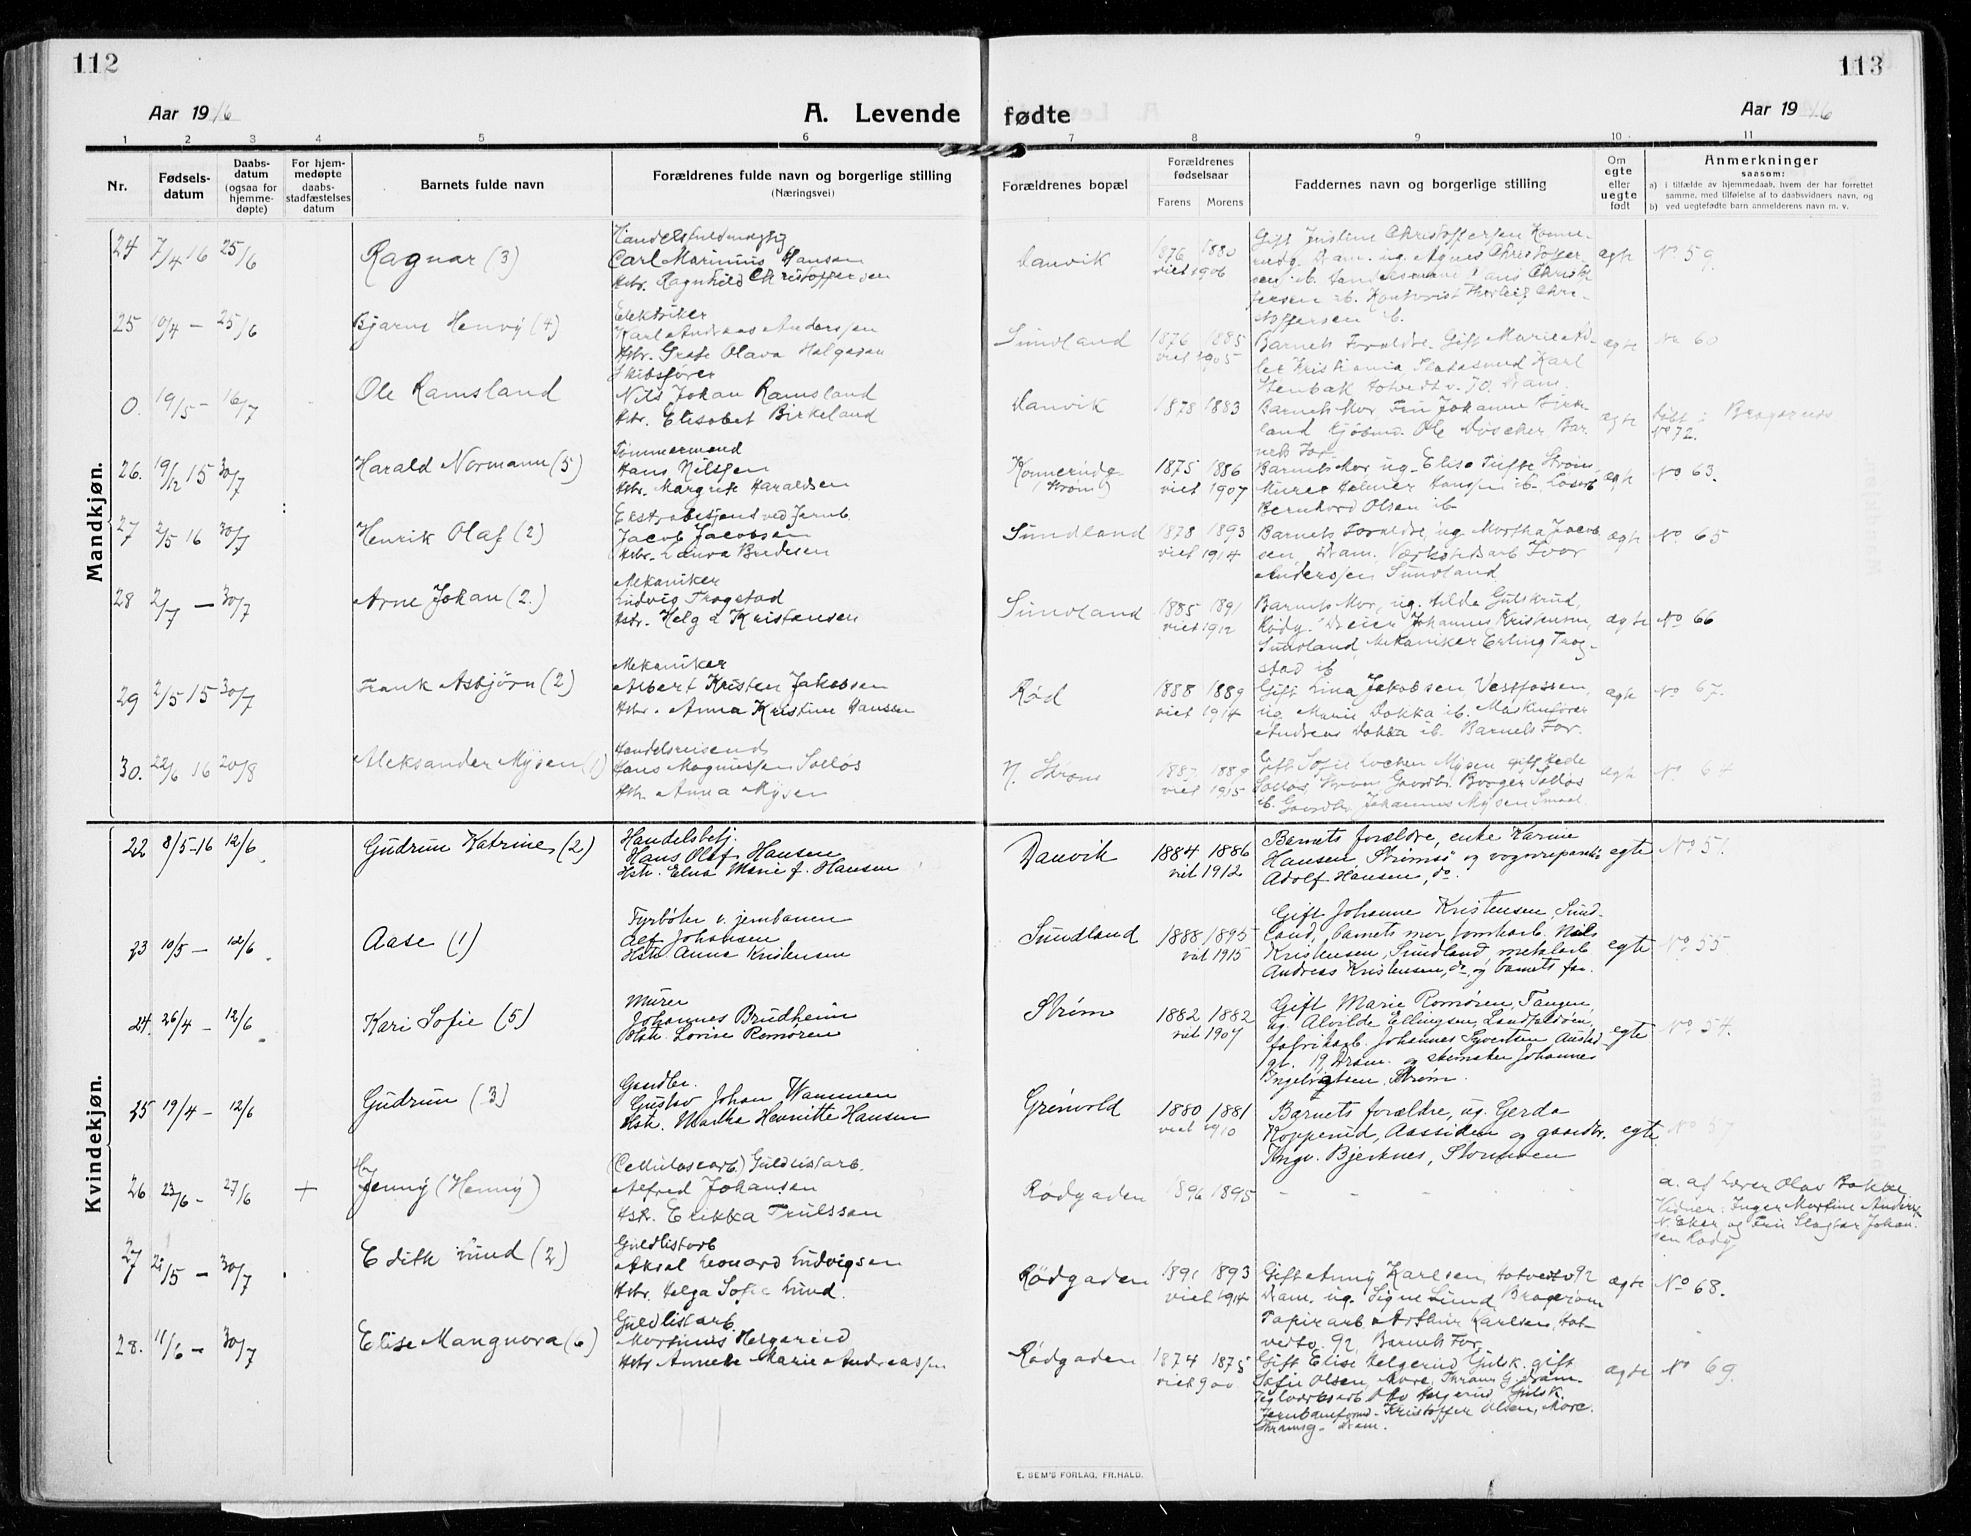 112
113
Aar 1916
A. Levende
fødte
Aar 1916
1 2 3 4 5 6 7 8 9 10 11
Nr.
Fødsels-
datum
Daabs-
datum
(ogsaa for
hjemme-
døpte)
For hjem-
medøpte
daabs-
stadfæstelses
datum
Barnets fulde navn
Forældrenes fulde navn og borgerlige stilling
(Næringsvei)
Forældrenes bopæl
Forældrenes
fødselsaar
Farens Morens
Faddernes navn og borgerlige stilling
Om
egte
eller
uegte
født
Anmerkninger
saasom:
a) i tilfælde av hjemmedaab, hvem der har forrettet
samme, med tilføielse af to daabsvidners navn, og
b) ved uegtefødte barn anmelderens navn m. v.
Mandkjøn.
24 7/4 16 25/6
Ragnar (3)
Handelsfuldmægtig
Carl Marinius Hansen
Hstr. Ragnhild Christoffersen
Danvik
1876 1880
viet 1906
Gift Justine Christoffersen
ægte
No 59.
25 10/4 – 25/6
Bjarne Henry (4)
Elektriker
Karl Andreas Anderssen
Hstr. Grete Olava Helgesen
Sundland
1876 1885
viet 1905
Barnets Foreldre. Gift Marie
Kristiania Karl
Stenbæk Dram.
ægte
No 60
0. 19/5 – 16/7
Ole Ramsland
Skibsfører
Nils Johan Ramsland
Hstr. Elisabet Birkeland
Danvik
1878 1883
Barnets Mor, Johanne Birke-
land Ole
nets Far
ægte
Døbt i Bragernes
No 72.
26. 19/12 15 30/7
Harald Normann (5)
Tømmermand
Hans Nilssen
Hstr. Margrete Haraldsen
Konnerudg
(Strøm)
1875 1886
viet 1907
Barnets Mor ug. Elise Tufte, Strøm,
Murer Helmer Hanssen ib.
Bernhard Olsen ib
ægte
No 63.
27 2/5 16 30/7
Henrik Olaf (2)
Ekstrabetjent ved Jernb.
Jacob Jacobsen
Hstr. Laura Bredesen
Sundland
1878 1893
viet 1914
Barnets Foreldre, ug Martha Jacob
sen, Dram. Værkstedsarb Ivar
Anderssen, Sundland
ægte
No 65
28 2/7 – 30/7
Arne Johan (2.)
Mekaniker
Ludvig Trogstad
Hstr. Helga Kristensen
Sundland
1885 1891
viet 1912
Barnets Mor, ug. Hilda Gulskrud,
Rødg. Dreier Johannes Kristensen,
Sundland, Mekaniker Erling Trog-
stad ib
ægte
No 66
29 2/5 15 30/7
Frank Asbjørn (2)
Mekaniker
Albert Kristen Jakobsen
Hstr. Anna Kristine Hansen
Rød
1888 1889
viet 1914
Gift Lina Jakobsen, Vestfossen,
ug. Marie Dokka ib. Maskinfører
Andreas Dokka ib. Barnets Far.
ægte
No 67.
30. 22/6 16 20/8
Aleksander Mysen (1)
Handelsreisende
Hans Magnussen Solløs
Hstr. Anna Mysen
N. Strøm
1889
viet 1915
Gift Sofie Mysen gift
Solløs Strøm, Gaardbr. Borger Solløs
ib. Gaardbr. Johannes Mysen
ægte
No 64
Kvindekjøn.
22 8/5-16 12/6
Gudrun Katrine (2)
Handelsbetj.
Hans Olaf Hansen
Hstr. Elna Marie f. Hansen
Danvik
1884 1886
viet 1912
Barnets forældre, enke Karine
Hansen, Strømsø og
Adolf Hansen, do.
egte
No 51.
23 10/5 – 12/6
Aase (1)
Fyrbøter v. jernbanen
Alf Johansen
Hstr. Anna Kristensen
Sundland
1888 1895
viet 1915
Gift Johanne Kristensen, Sund-
land, barnets mor, Nils
Kristensen, Sundland,
Andreas Kristensen, do, og barnets far.
egte
No 55
24. 26/4 – 12/6
Kari Sofie (5)
Murer
Johannes Brudheim
Hstr. Lovise Romøren
Strøm
1882 1882
viet 1907
Gift Marie Romøren, Tangen,
ug. Alvilde Ellingsen, Landfaldøen,
fabrikarb. Johannes Syvertsen
gt. 19, Dram. og Johannes
Ingebrigtsen, Strøm.
egte
No 54.
25 19/4 – 12/6
Gudrun (3)
Gaardbr.
Gustav Johan Wammen
Hstr. Martha Henriette Hansen
Grønvold
1880 1881
viet 1910
Barnets forældre, ug. Gerda
Kopperud, Aassiden og gaardbr.
Ingv. Bjerknes,
egte.
No 57
26 23/6 – 27/6 +
Jenny (Henny)
(Cellulosearb.) Guldlistarb.
Alfred Johansen
Hstr. Erikka Trulssen
Rødgaden
1896 1895
– – – –
a. af Lærer Olav Bakke
Vidner: Inger Martine
N. Eker og Fru Johan-
sen Rødg
27 21/5 – 30/7
Edith Lund (2)
Guldlistarb
Aksel Leonard Ludvigsen
Hstr. Helga Sofie Lund.
Rødgaden
1891 1893
viet 1914
Gift Anny Karlsen, 92
Dram. ug. Signe Lund,
Papirarb Arthur Karlsen,
92, Barnets Far
ægte
No 68.
28. 11/6 – 30/7
Elise Mangnora (6)
Guldlistarb.
Martinius Helgerud
Hstr Annete Marie Andreassen
Rødgaden
1874 1875
viet 900
Gift Elise Helgerud Gulsk. gift
Sofie Olsen,
Teglværksarb Helgerud, Gulsk.
Kristoffer Olsen,
Dram.
ægte
No 69.
E. SEM'S FORLAG, FR.HALD.